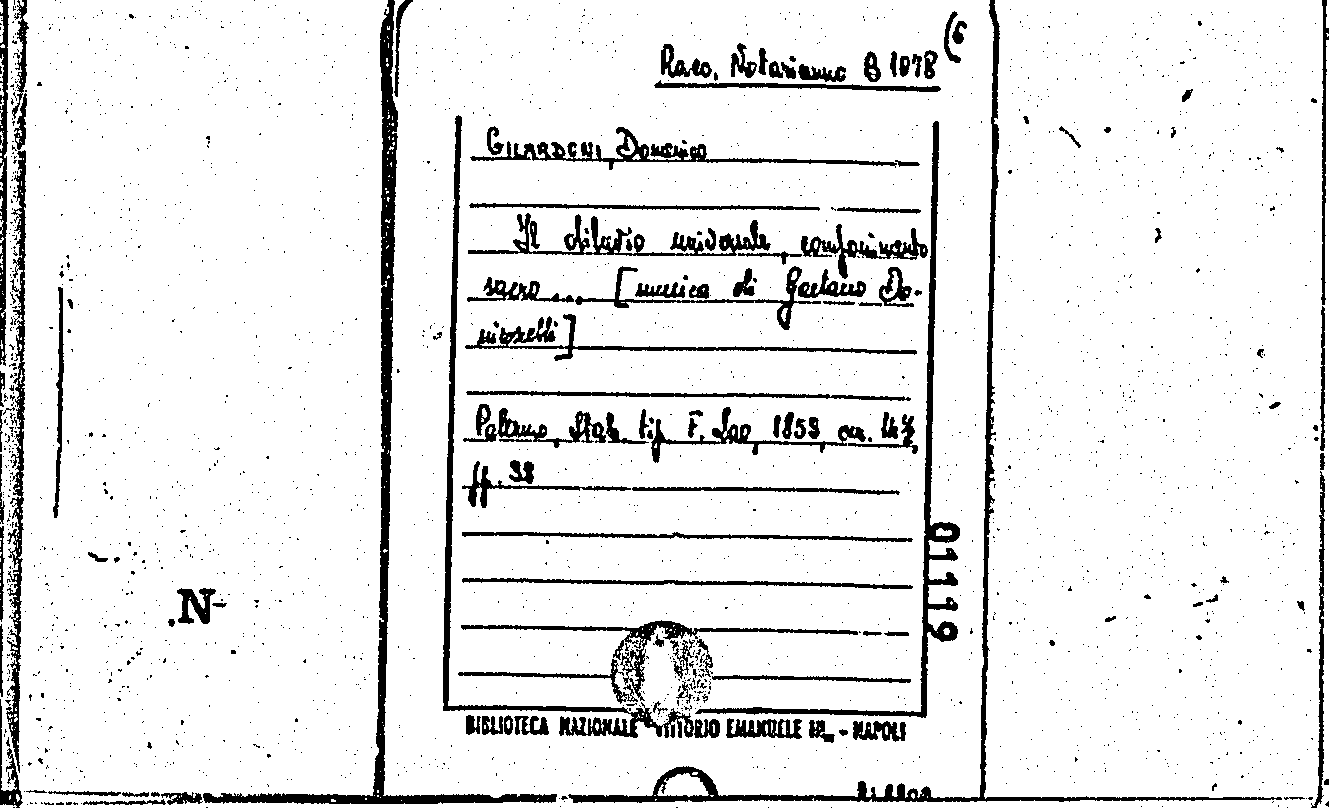 (6
Racc. Notarianno B 1078
GILARDONI, Domenico
Il diluvio universale, componimento
sacro ... [musica di Gaetano Do-
nizetti]
Palermo, Stab. tip. F. Lao, 1853, cm.
pp. 38
01119
.N-
BIBLIOTECA NAZIONALE VITTORIO EMANUELE III - NAPOLI